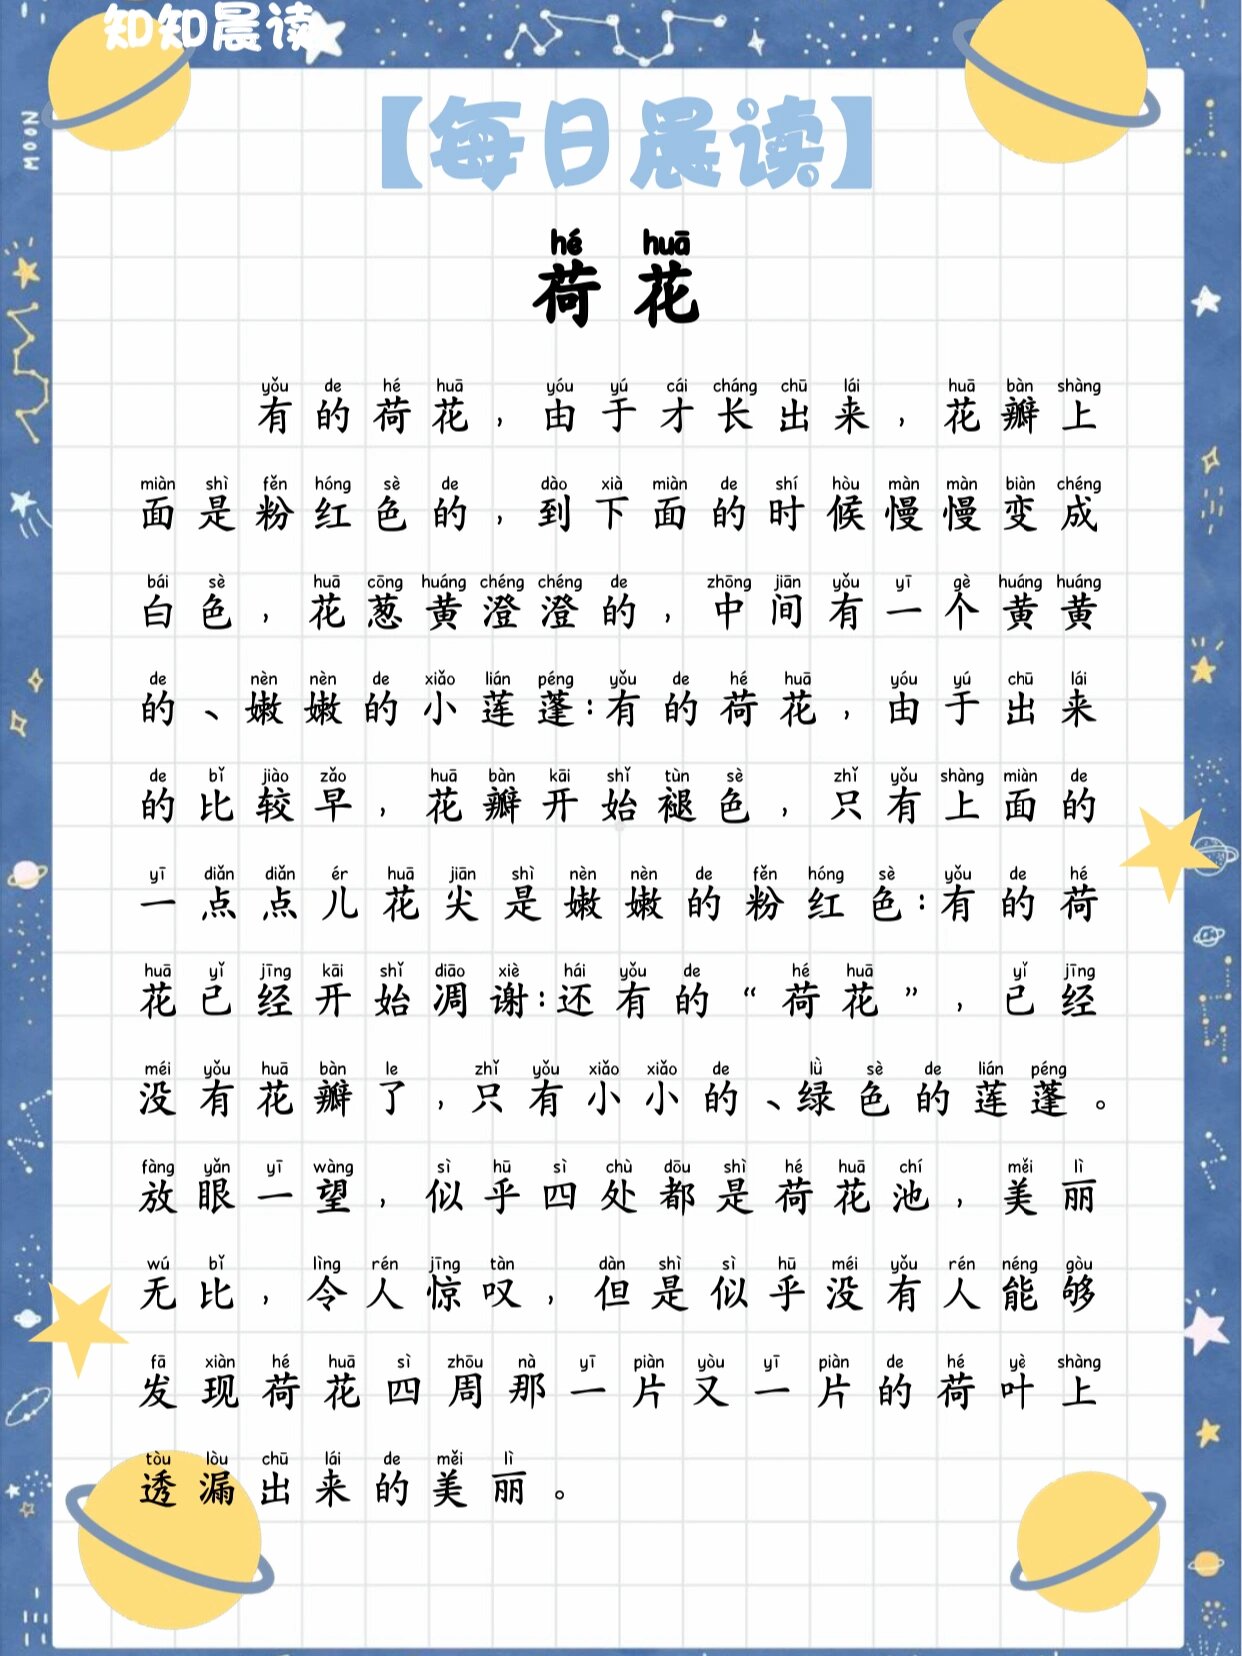 知知晨读
MOON
【每日晨读】
hé huā
荷花
yǒu de hé huā yóu yú cái cháng chū lái huā bàn shàng
有的荷花，由于才长出来，花瓣上
miàn shì fěn hóng sè de dào xià miàn de shí hòu màn màn biàn chéng
面是粉红色的，到下面的时候慢慢变成
bái sè huā cōng huáng chéng chéng de zhōng jiān yǒu yī gè huáng huáng
白色，花葱黄澄澄的，中间有一个黄黄
de nèn nèn de xiǎo lián péng yǒu de hé huā yóu yú chū lái
的、嫩嫩的小莲蓬：有的荷花，由于出来
de bǐ jiào zǎo huā bàn kāi shǐ tùn sè zhǐ yǒu shàng miàn de
的比较早，花瓣开始褪色，只有上面的
yī diǎn diǎn ér huā jiān shì nèn nèn de fěn hóng sè yǒu de hé
一点点儿花尖是嫩嫩的粉红色：有的荷
huā yǐ jīng kāi shǐ diāo xiè hái yǒu de hé huā yǐ jīng
花已经开始凋谢：还有的“荷花”，已经
méi yǒu huā bàn le zhǐ yǒu xiǎo xiǎo de lǜ sè de lián péng
没有花瓣了，只有小小的、绿色的莲蓬。
fàng yǎn yī wàng sì hū sì chù dōu shì hé huā chí měi lì
放眼一望，似乎四处都是荷花池，美丽
wú bǐ lìng rén jīng tàn dàn shì sì hū méi yǒu rén néng gòu
无比，令人惊叹，但是似乎没有人能够
fā xiàn hé huā sì zhōu nà yī piàn yòu yī piàn de hé yè shàng
发现荷花四周那一片又一片的荷叶上
tòu lòu chū lái de měi lì
透漏出来的美丽。